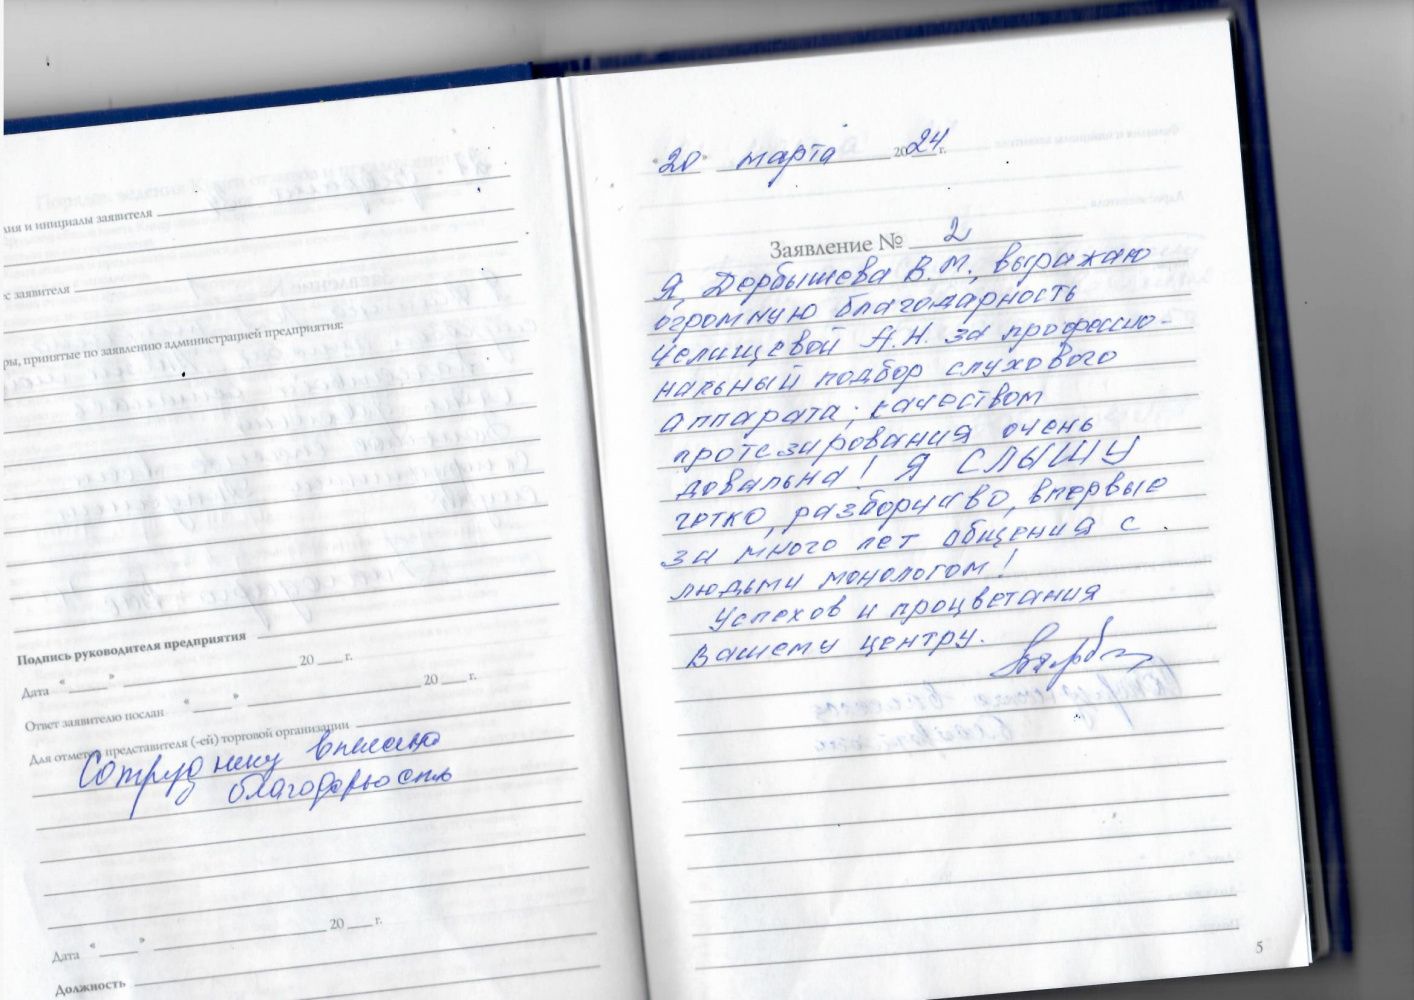 лия и инициалы заявителя
с заявителя
ры, принятые по заявлению администрацией предприятия:
Подпись руководителя предприятия
Дата « » 20 г.
Ответ заявителю послан « » 20 г.
Для отметок представителя (-ей) торговой организации
Сотруднику внесена
благодарность
Дата « » 20 г.
Должность
«20» марта 2024 г.
Заявление № 2
Я, Дорбышева В.М., выражаю
огромную благодарность
Челищевой А.Н. за профессио-
нальный подбор слухового
аппарата; качеством
протезирования очень
довольна! Я СЛЫШУ
четко, разборчиво, впервые
за много лет общения с
людьми монологом!
Успехов и процветания
Вашему центру.
5